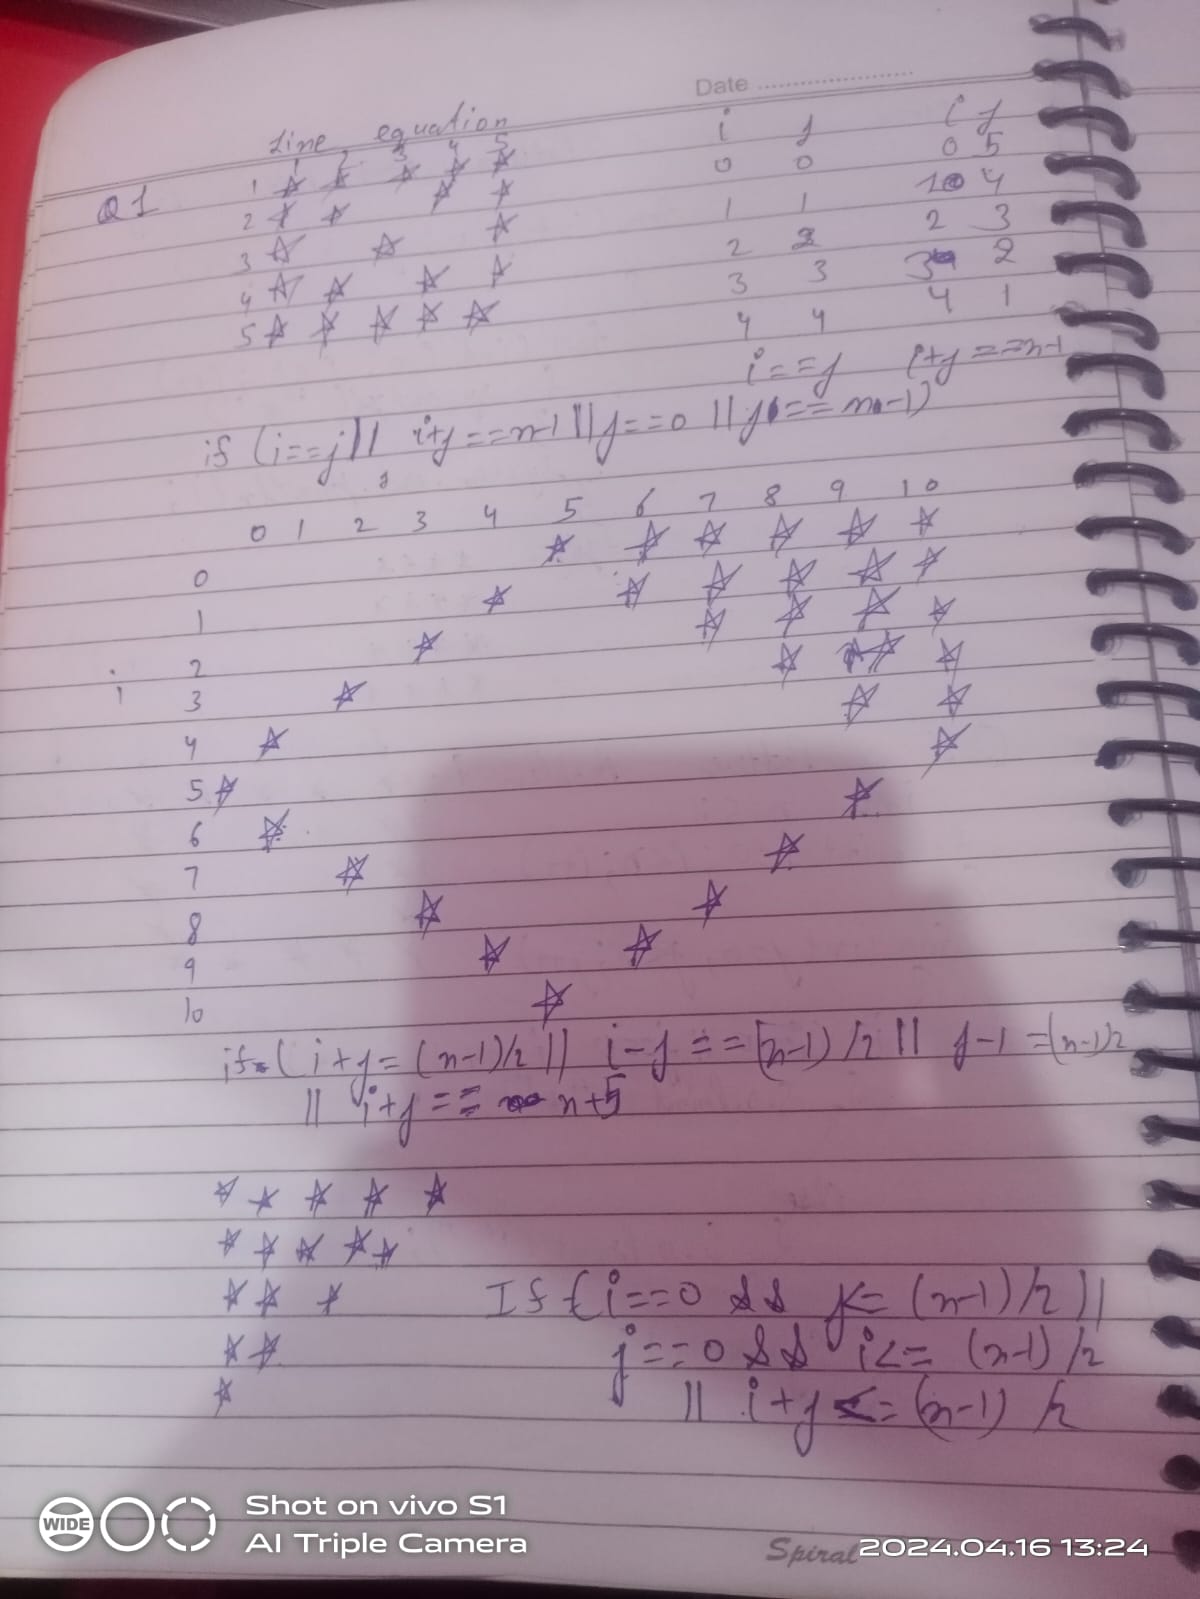 Date
Line equation
i j
i j
1 2 3 4 5
Q1
1 ☆ ☆ ☆ ☆ ☆
0 0
0 5
2 ☆ ☆ ☆ ☆
1 1
1 4
3 ☆ ☆ ☆
2 2
2 3
4 ☆ ☆ ☆ ☆
3 3
3 2
5 ☆ ☆ ☆ ☆ ☆
4 4
4 1
i==j i+j==n-1
if (i==j|| i+j==n-1||j==0 ||j==n-1)
j
0 1 2 3 4 5 6 7 8 9 10
0 ☆ ☆ ☆ ☆ ☆ ☆
1 ☆ ☆ ☆ ☆ ☆ ☆
2 ☆ ☆ ☆ ☆ ☆
i
3 ☆ ☆ ☆ ☆
4 ☆ ☆ ☆
5 ☆ ☆
6 ☆ ☆
7 ☆ ☆
8 ☆ ☆
9 ☆ ☆
10 ☆
if (i+j=(n-1)/2|| i-j==(n-1)/2|| j-1=(n-1)2
|| i+j== n+5
☆ ☆ ☆ ☆ ☆
☆ ☆ ☆ ☆ ☆
☆ ☆ ☆
☆ ☆
☆
If (i==0 && j<=(n-1)/2||
j==0 && i<= (n-1)/2
|| i+j<=(n-1)/2
WIDE
Shot on vivo S1
AI Triple Camera
Spiral
2024.04.16 13:24